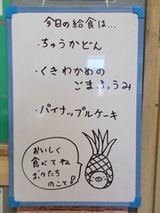 今日の給食は…
・ちゅうかどん
・くきわかめの
ごまふうみ
・パイナップルケーキ
おいしく
食べてね
ボクたち
のこと!